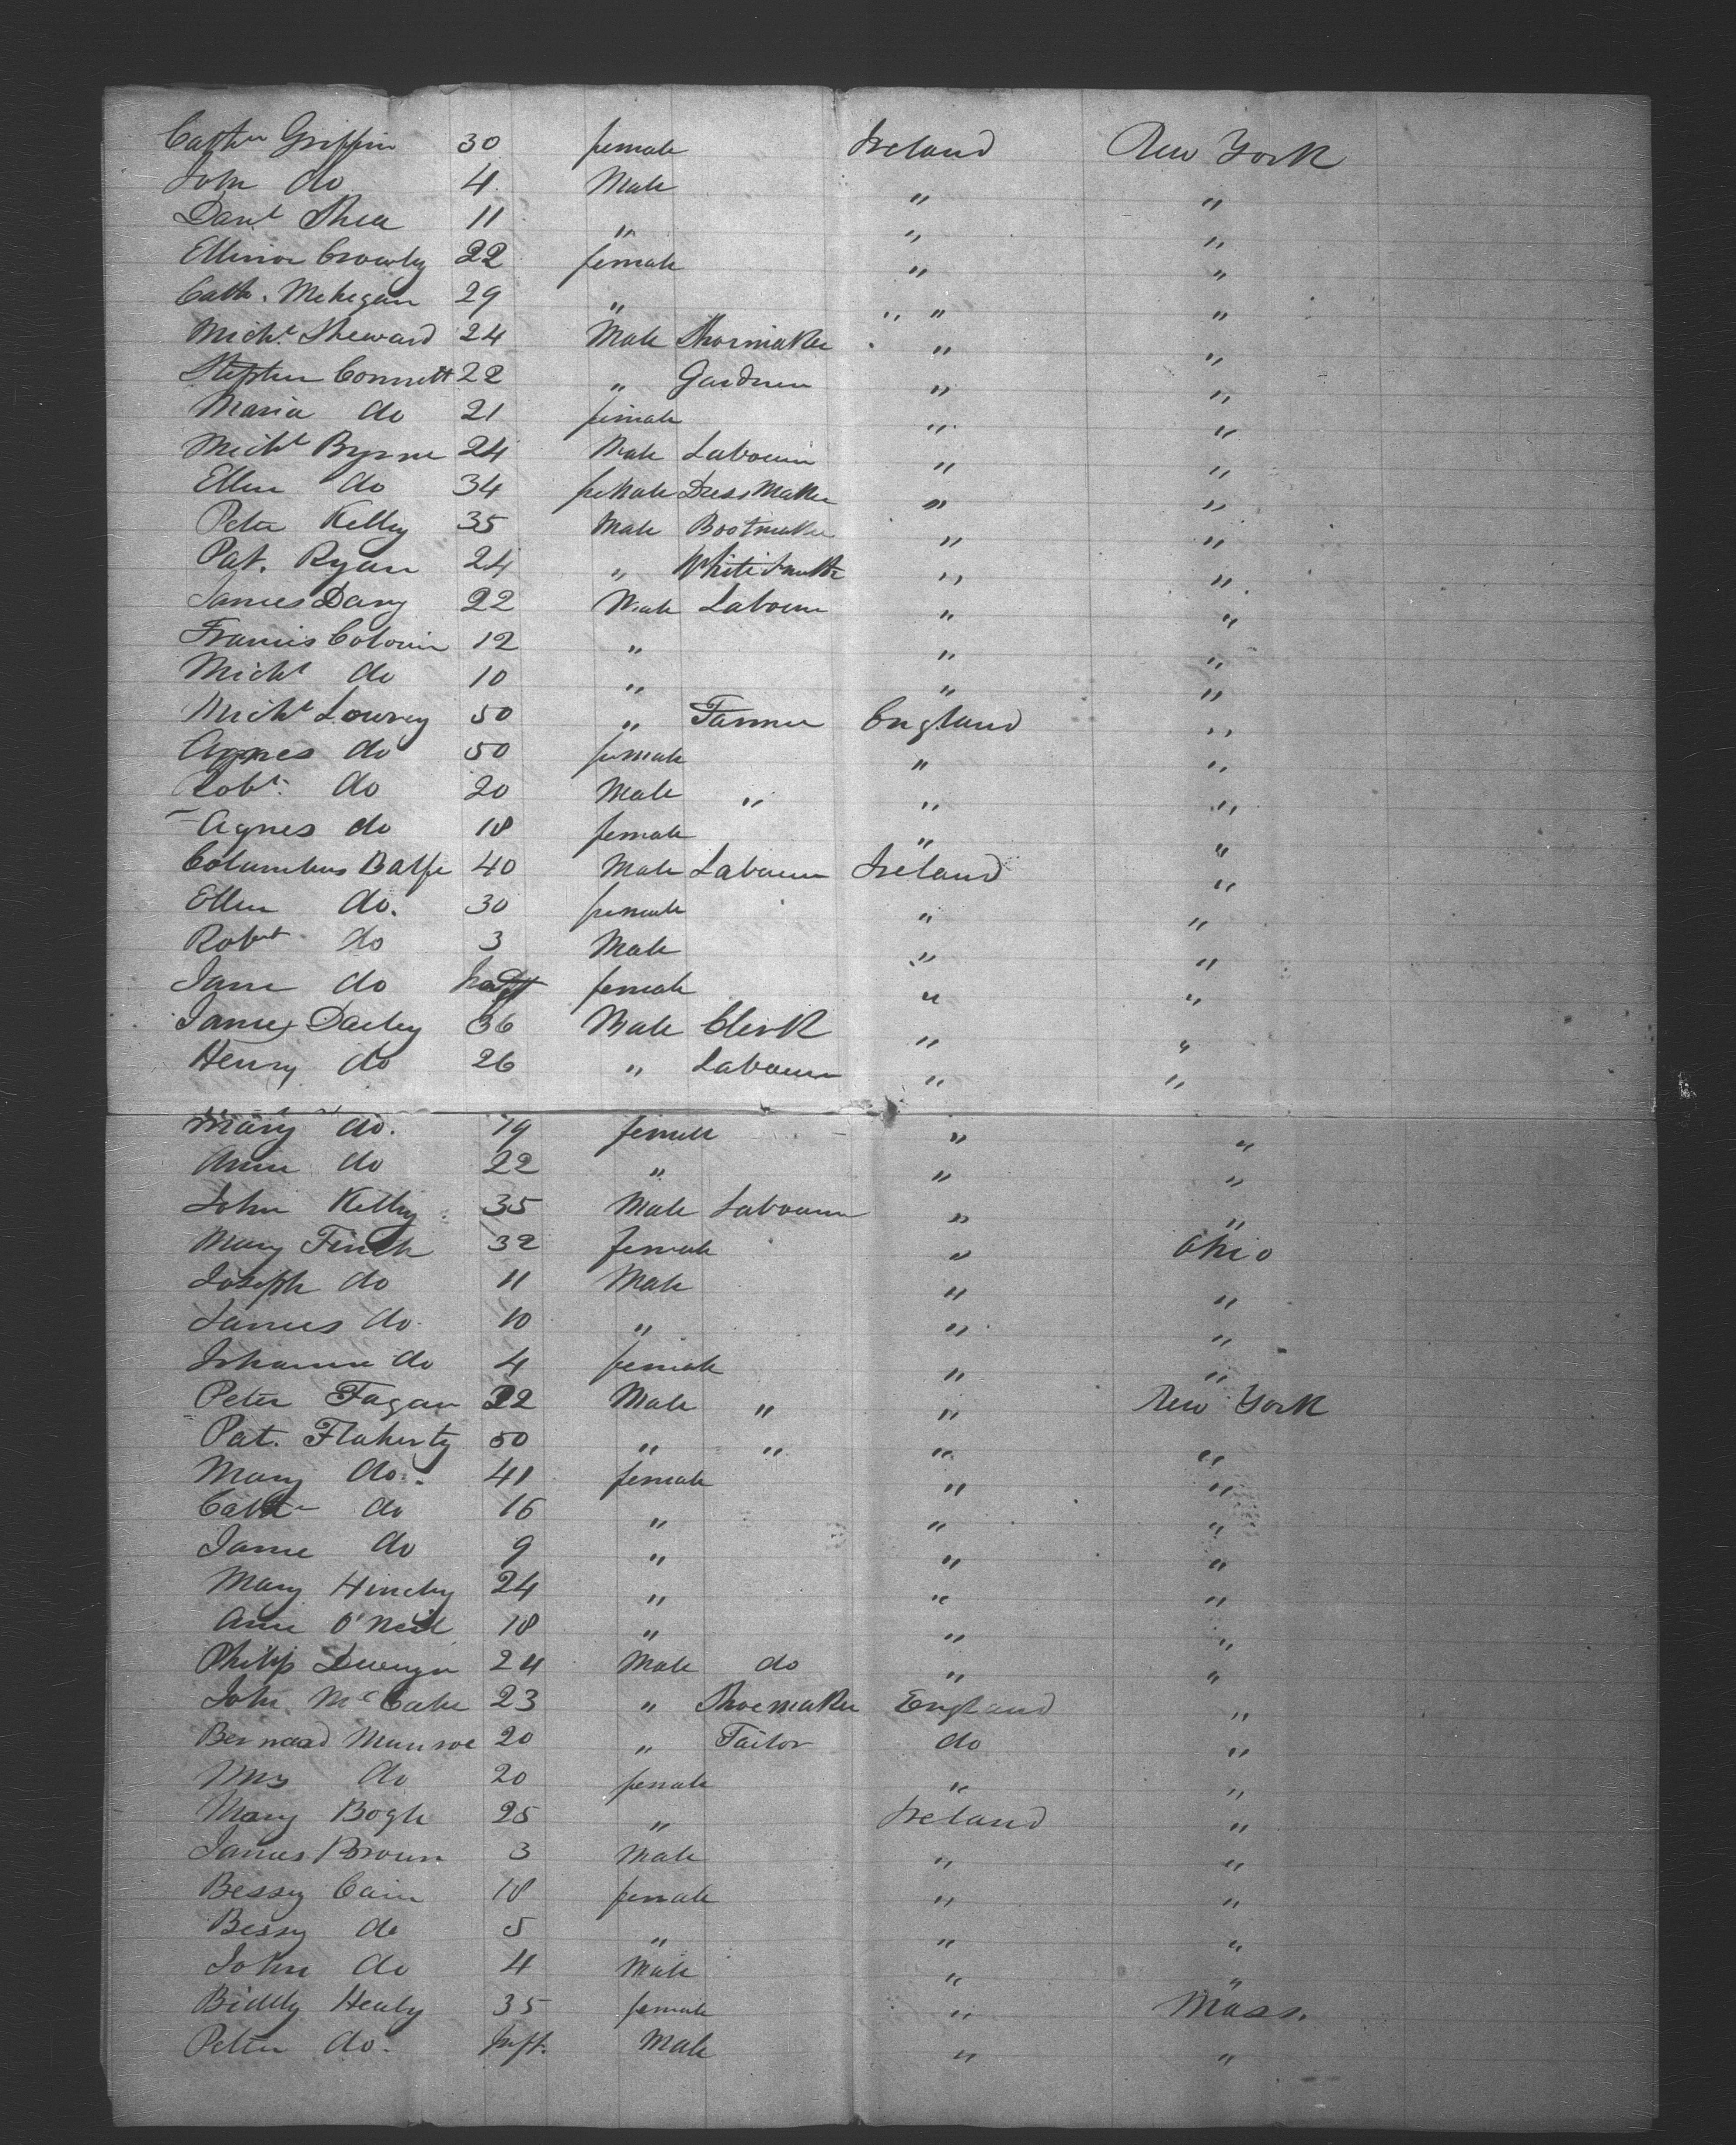 Cathn Griffin 30 female Ireland New York
John do 4 Male " "
Danl Shea 11 " " "
Ellinor Crowley 22 female " "
Cath. Mehegan 29 " " "
Michl Sheward 24 Male Shoemaker " "
Stephen Connett 22 " Gardner " "
Maria do 21 female " "
Michl Byrne 24 Male Labourer " "
Ellen do 34 female Dress Maker " "
Peter Kelly 35 Male Bootmaker " "
Pat. Ryan 24 " Whitesmith " "
James Davy 22 Male Labourer " "
Francis Colovin 12 " " "
Michl do 10 " " "
Michl Lowrey 50 " Farmer England "
Agnes do 50 female " "
Robt. do 20 Male " " "
Agnes do 18 female " "
Columbus Balfe 40 Male Labourer Ireland "
Ellen do. 30 female " "
Robert do 3 Male " "
Jane do female " "
James Dailey 36 Male Clerk " "
Henry do 26 " Labourer " "
Mary do. 19 female " "
Ann do 22 " " "
John Kelly 35 Male Labourer " "
Mary Finch 32 female " Ohio
Joseph do 11 Male " "
James do. 10 " " "
Johanna do 4 female " "
Peter Fagan 22 Male " " New York
Pat. Flaherty 50 " " " "
Mary do. 41 female " "
Cathn do 16 " " "
Jane do 9 " " "
Mary Hinchy 24 " " "
Ann O'Neil 18 " " "
Philip 24 Male do " "
John McCabe 23 " Shoemaker England "
Bernard Munroe 20 " Tailor do "
Mrs do 20 female " "
Mary Bogle 25 " Ireland "
James Brown 3 Male " "
Bessy Cain 18 female " "
Bessy do 5 " " "
John do 4 Male " "
Biddy Healy 35 female " Mass.
Peter do. Inft. Male " "